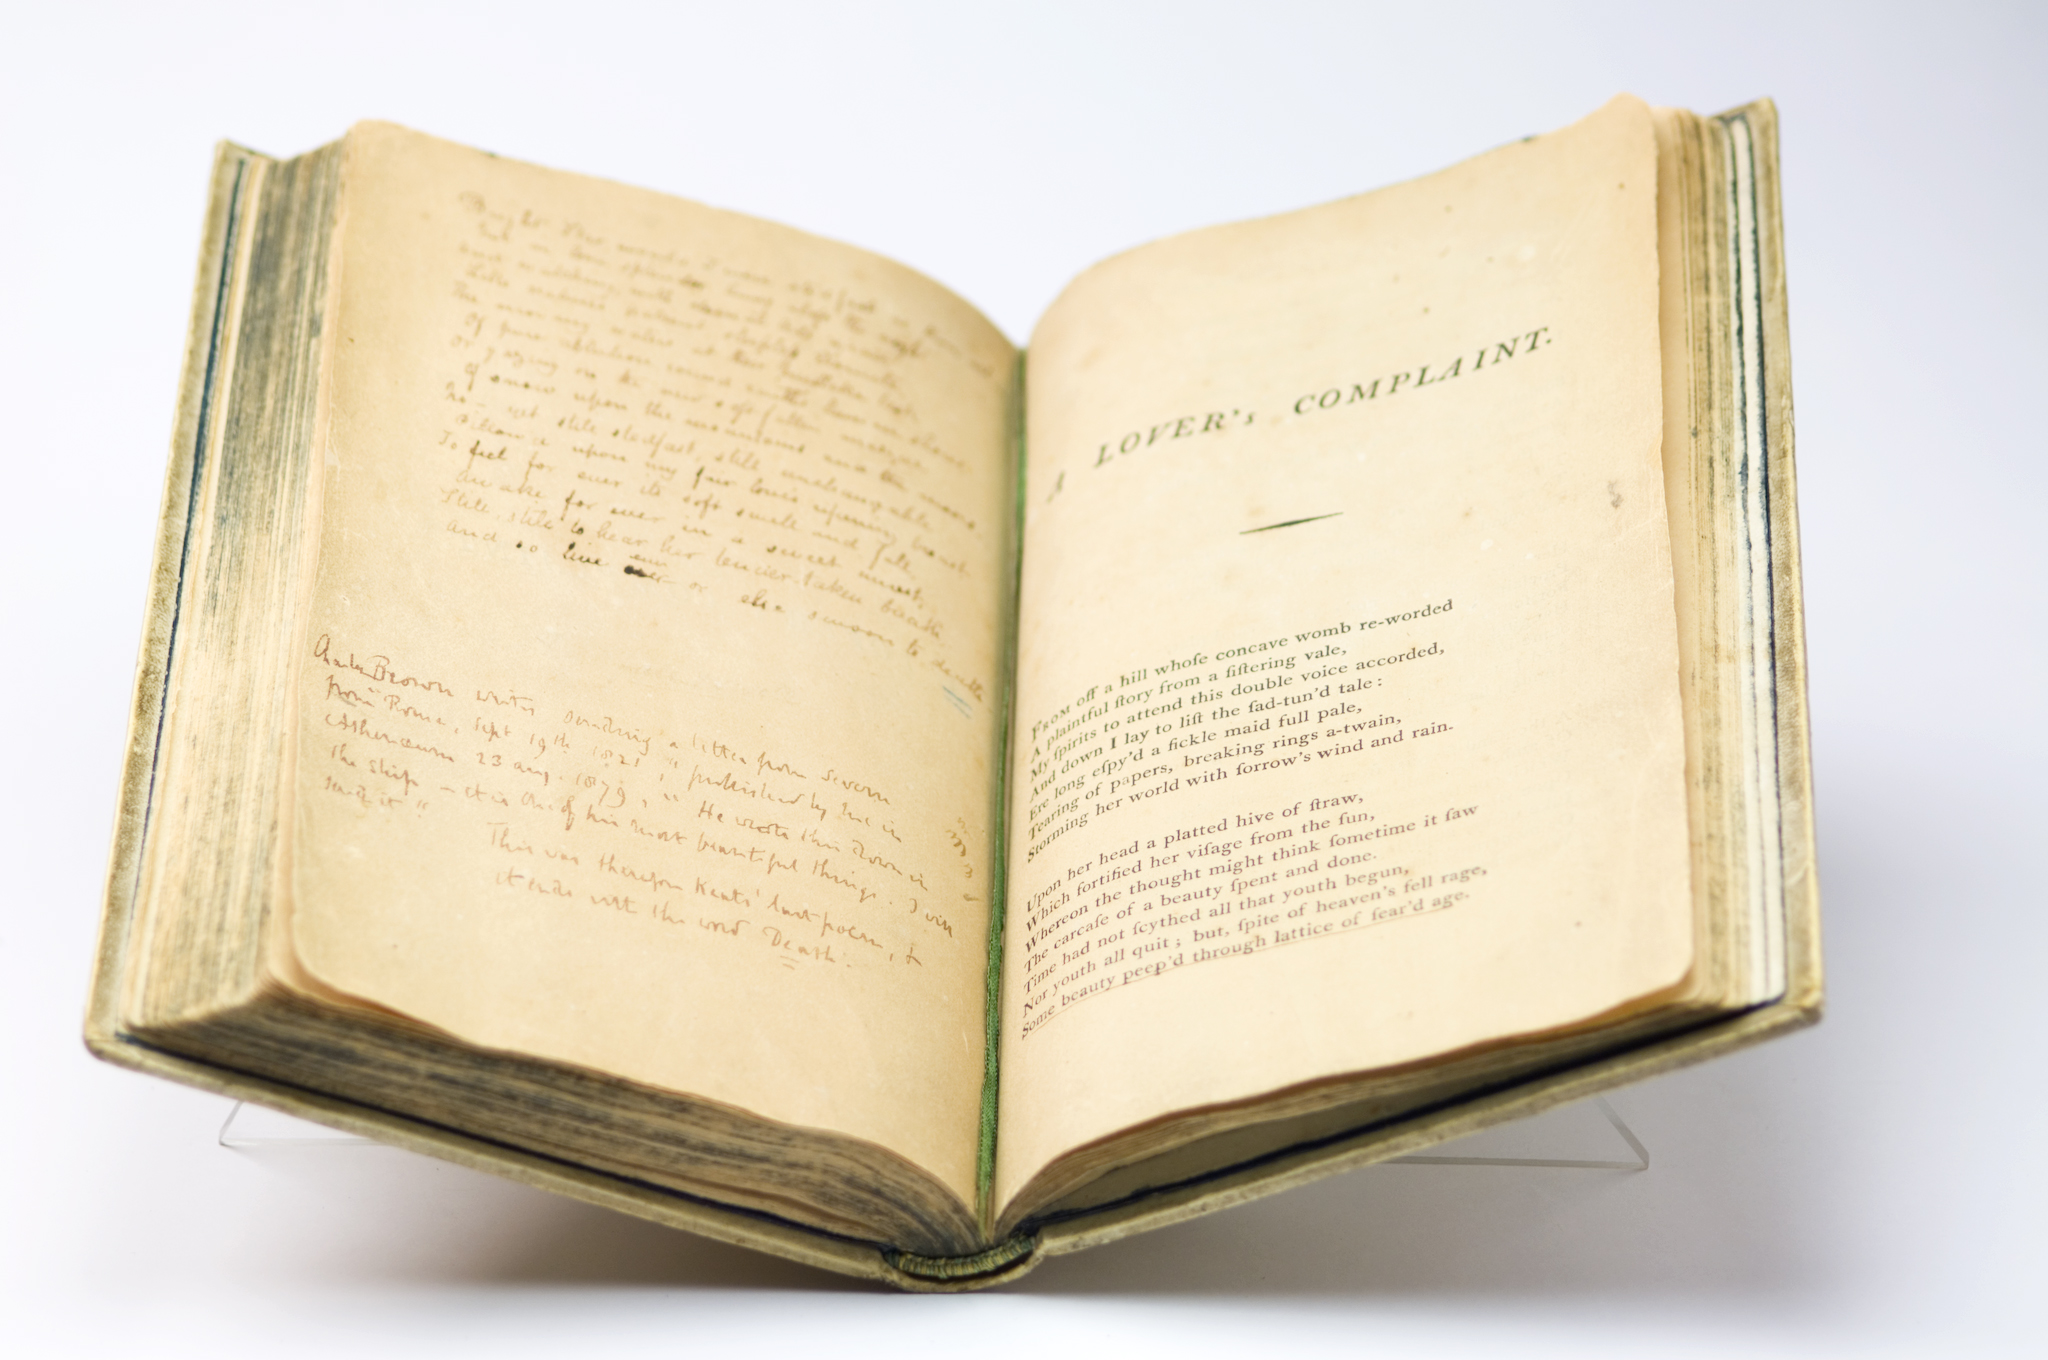 Bright Star would I were stedfast as thou art
Not in lone splendor hung
And watching, with eternal lids apart
Like natures patient sleepless
The morning waters at their
Of pure ablution round earth's human shores
Or gazing on the new soft fallen masque
Of snow upon the mountains and the moors.
No — yet still stedfast, still unchangeable
Pillow'd upon my fair love's ripening breast
To feel for ever its soft swell and fall,
Awake for ever in a sweet unrest,
Still, still to hear her tender-taken breath,
And so live ever or else swoon to death
Charles Brown writes sending a letter from Severn
from Rome, Sept 19th 1821, published by me in
Athenæum 23 Aug. 1879, "He wrote this down in
the ship — it is one of his most beautiful things. I will
send it"
This was therefore Keats' last poem, &
it ends with the word Death.
A LOVER's COMPLAINT.
FROM off a hill whoſe concave womb re-worded
A plaintful ſtory from a ſiſtering vale,
My ſpirits to attend this double voice accorded,
And down I lay to liſt the ſad-tun'd tale :
Ere long eſpy'd a fickle maid full pale,
Tearing of papers, breaking rings a-twain,
Storming her world with ſorrow's wind and rain.
Upon her head a platted hive of ſtraw,
Which fortified her viſage from the ſun,
Whereon the thought might think ſometime it ſaw
The carcaſe of a beauty ſpent and done.
Time had not ſcythed all that youth begun,
Nor youth all quit ; but, ſpite of heaven's fell rage,
Some beauty peep'd through lattice of ſear'd age.